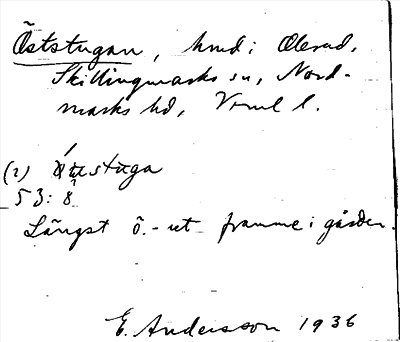 Öststugan, hmd i Olerud,
Skillingmarks sn, Nord-
marks hd, Vrml l.
(2)
53: 8
Längst ö.-ut framme i gården.
E. Andersson 1936